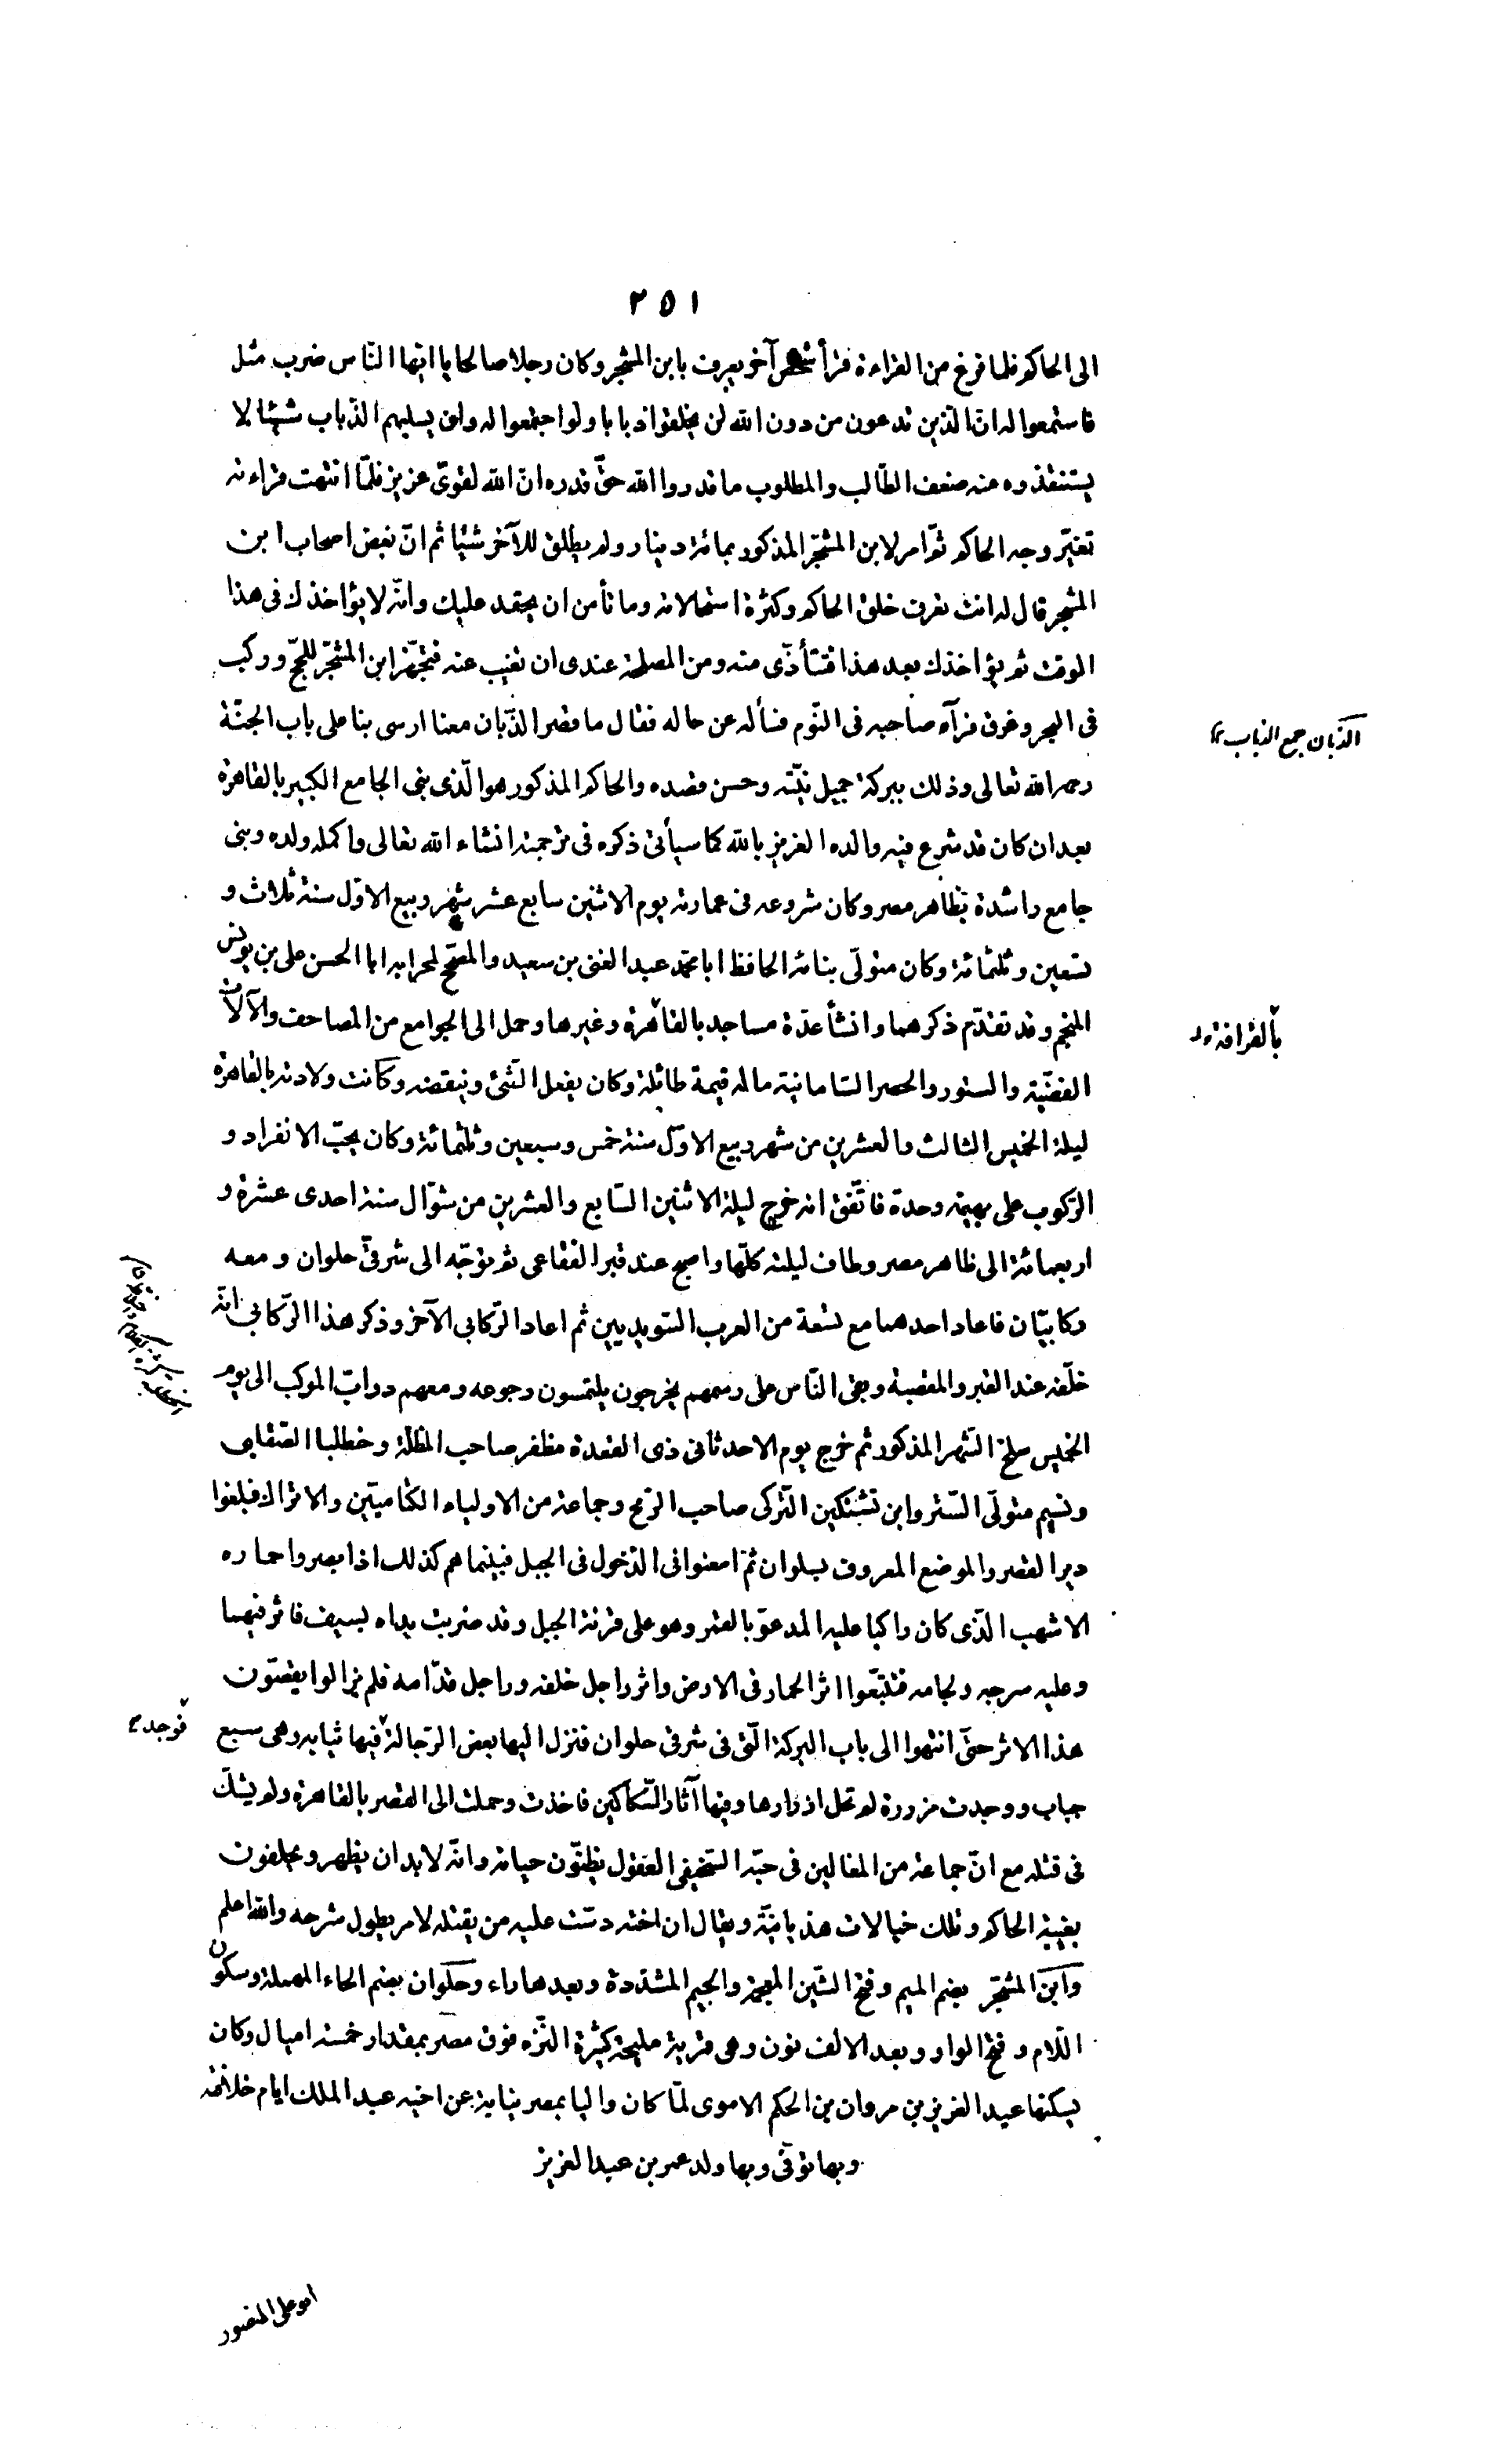 ٢٥١
الى الحاكم فلما فرغ من القراءة قرأ شخص آخر يعرف بابن المشجر وكان رجلا صالحا يا ايها النّاس ضرب مثل
فاستمعوا له انّ الّذين تدعون من دون الله لن يخلقوا ذبابا ولو اجتمعوا له وان يسلبهم الذّباب شيئا لا
يستنقذوه منه ضعف الطّالب والمطلوب ما قدروا الله حقّ قدره انّ الله لقويّ عزيز فلمّا انتهت قراءته
تغيّر وجه الحاكم ثمّ امر لابن المشجّر المذكور بمائة دينار ولم يطلق للآخر شيئا ثم انّ بعض اصحاب ابن
المشجر قال له انت تعرف خلق الحاكم وكثرة استحالاته وما تأمن ان يحقد عليك وانّه لا يؤاخذك فى هذا
الوقت ثم يؤاخذك بعد هذا فتتأذّى منه ومن المصلحة عندى ان تغيب عنه فتجهّز ابن المشجّر للحجّ وركب
فى البحر وغرق فرآه صاحبه فى النّوم فسأله عن حاله فقال ما قصر الذّبان معنا ارسى بنا على باب الجنّة
الذّبان جمع الذباب ١٢
رحمه الله تعالى وذلك ببركة جميل نيّته وحسن قصده والحاكم المذكور هو الّذى بنى الجامع الكبير بالقاهرة
بعد ان كان قد شرع فيه والده العزيز بالله كما سيأتى ذكره فى ترجمته انشاء الله تعالى واكمله ولده وبنى
جامع راشدة بظاهر مصر وكان شروعه فى عمارته يوم الاثنين سابع عشر شهر ربيع الاوّل سنة ثلاث و
تسعين وثلثمائة وكان متولّى بنائه الحافظ ابا محمّد عبد الغنى بن سعيد والمصحّح لمحرابه ابا الحسن على بن يونس
المنجم وقد تقدّم ذكرهما وانشأ عدّة مساجد بالقاهرة وغيرها وحمل الى الجوامع من المصاحف والآلات
بالقرافة
الفضّية والستور والحصر السّامانيّة ما له قيمة طائلة وكان يفعل الشّئ وينقضه وكانت ولادته بالقاهرة
ليلة الخميس الثالث والعشرين من شهر ربيع الاوّل سنة خمس وسبعين وثلثمائة وكان يحبّ الانفراد و
الرّكوب على بهيمة وحدة فاتّفق انه خرج ليلة الاثنين السّابع والعشرين من شوّال سنة احدى عشرة و
اربعمائة الى ظاهر مصر وطاف ليلته كلّها واصبح عند قبر الفقاعى ثم توجّه الى شرقىّ حلوان ومعه
ركابيّان فاعاد احدهما مع تسعة من العرب السّويديين ثم اعاد الرّكابى الآخر وذكر هذا الرّكابى انّه
خلّفه عند القبر والمقصبة وبقى النّاس على رسمهم يخرجون يلتمسون رجوعه ومعهم دوابّ الموكب الى يوم
الخميس سلخ الشّهر المذكور ثم خرج يوم الاحد ثانى ذى القعدة مظفر صاحب المظلّة وخطلبا الصّقلبى
ونسيم متولّى السّتر وابن تشتكين التّركى صاحب الرّمح وجماعة من الاولياء الكتاميّين والاتراك فبلغوا
دير القصر والموضع المعروف بسلوان ثمّ امعنوا فى الدّخول فى الجبل فبينما هم كذلك اذا بصروا حماره
الاشهب الّذى كان راكبا عليه المدعوّ بالقمر وهو على قرنة الجبل وقد ضربت يداه بسيف فاثر فيهما
وعليه سرجه ولجامه فتتبّعوا اثر الحمار فى الارض واثر راجل خلفه وراجل قدّامه فلم يزالوا يقصّون
هذا الاثر حتّى انتهوا الى باب البركة الّتى فى شرقى حلوان فنزل اليها بعض الرّجالة فيها ثيابه وهى سبع
فوجد
جباب ووجدت مزررة لم تحل ازرارها وفيها آثار السّكاكين فاخذت وحملت الى القصر بالقاهرة ولم يشكّ
فى قتله مع انّ جماعة من المغالين فى حبّه السّخيفى العقول يظنّون حياته وانّه لا بد ان يظهر ويحلفون
بغيبة الحاكم وتلك خيالات هذيانيّة ويقال ان اخته دسّت عليه من يقتله لامر يطول شرحه والله اعلم
وابن المشجّر بضم الميم وفتح الشّين المعجمة والجيم المشدّدة وبعدها راء وحلوان بضم الحاء المهملة وسكون
اللّام وفتح الواو وبعد الالف نون وهى قرية مليحة كثيرة النّزه فوق مصر بمقدار خمسة اميال وكان
يسكنها عبد العزيز بن مروان بن الحكم الاموى لمّا كان واليا بمصر نيابة عن اخيه عبد الملك ايام خلافته
وبها توفّى وبها ولد عمر بن عبد العزيز
ابو على المنصور